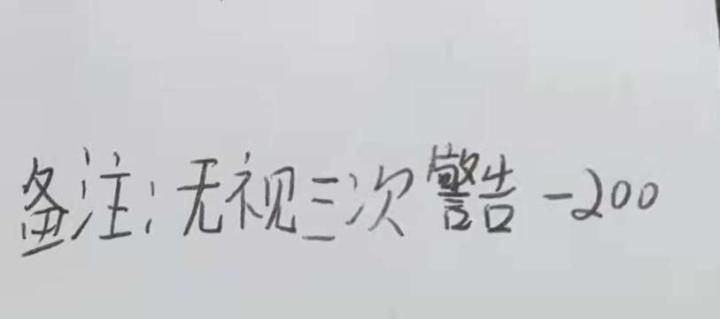 备注:无视三次警告 -200